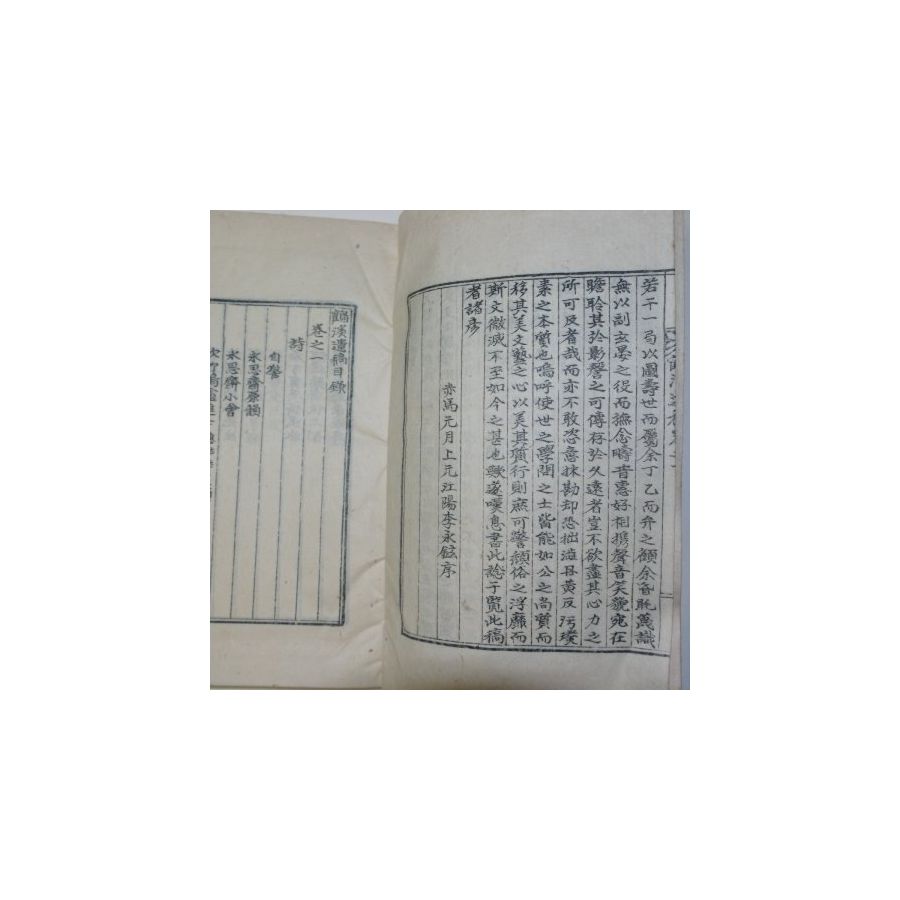 若干一局以圖壽世而屬余丁乙而弁之顧余昏眊蔑識
無以副玄墨之役而撫念疇昔惠好相携聲音笑貌宛在
瞻聆其於影響之可傳存於久遠者豈不欲盡其心力之
所可及者哉而亦不敢恣意抹勘却恐拙漼丹黃反污璞
素之本質也嗚呼使世之學問之士皆能如公之尚質而
移其美文藝之心以美其質行則庶可警頹俗之浮靡而
斯文微滅不至如今之甚也歟遂嘆息書此諗于覽此稿
者諸彦
赤馬元月上元江陽李永鉉序
溪遺稿目錄
卷之一
詩
自警
永思齋原韻
永思齋小會